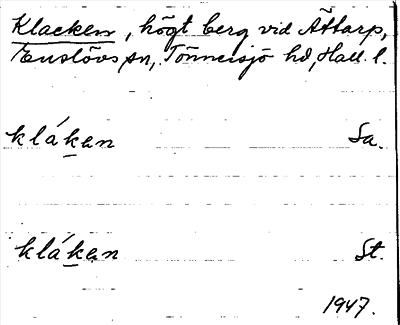 Klacken, högt berg vid Åttarp,
Enslövs sn, Tönnersjö hd, Hall. l.
klákan Sa.
klákan St.
1947.